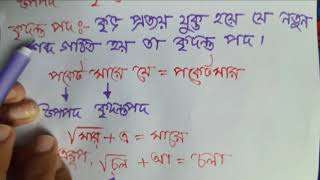 কৃদন্ত পদ :- কৃৎ প্রত্যয় যুক্ত হয়ে যে নতুন
শব্দ গঠিত হয় তা কৃদন্ত পদ।
পকেট মারে যে = পকেটমার
উপপদ কৃদন্তপদ
√মার + এ = মারে
এরূপ, √চল + আ = চলা